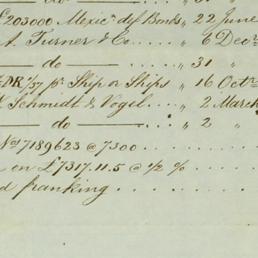 do do
£203000 Mexicn. def Bonds „ 22 June
A. Turner & Co. „ 6 Decr.
do „ 31 „
DR 1/37 pr. Ship or Ships „ 16 Octr.
Schmidt & Vogel „ 2 March
do „ 2 „
Nos 7189623 @ 7300
on £7317.11.5 @ 1/2 %
franking